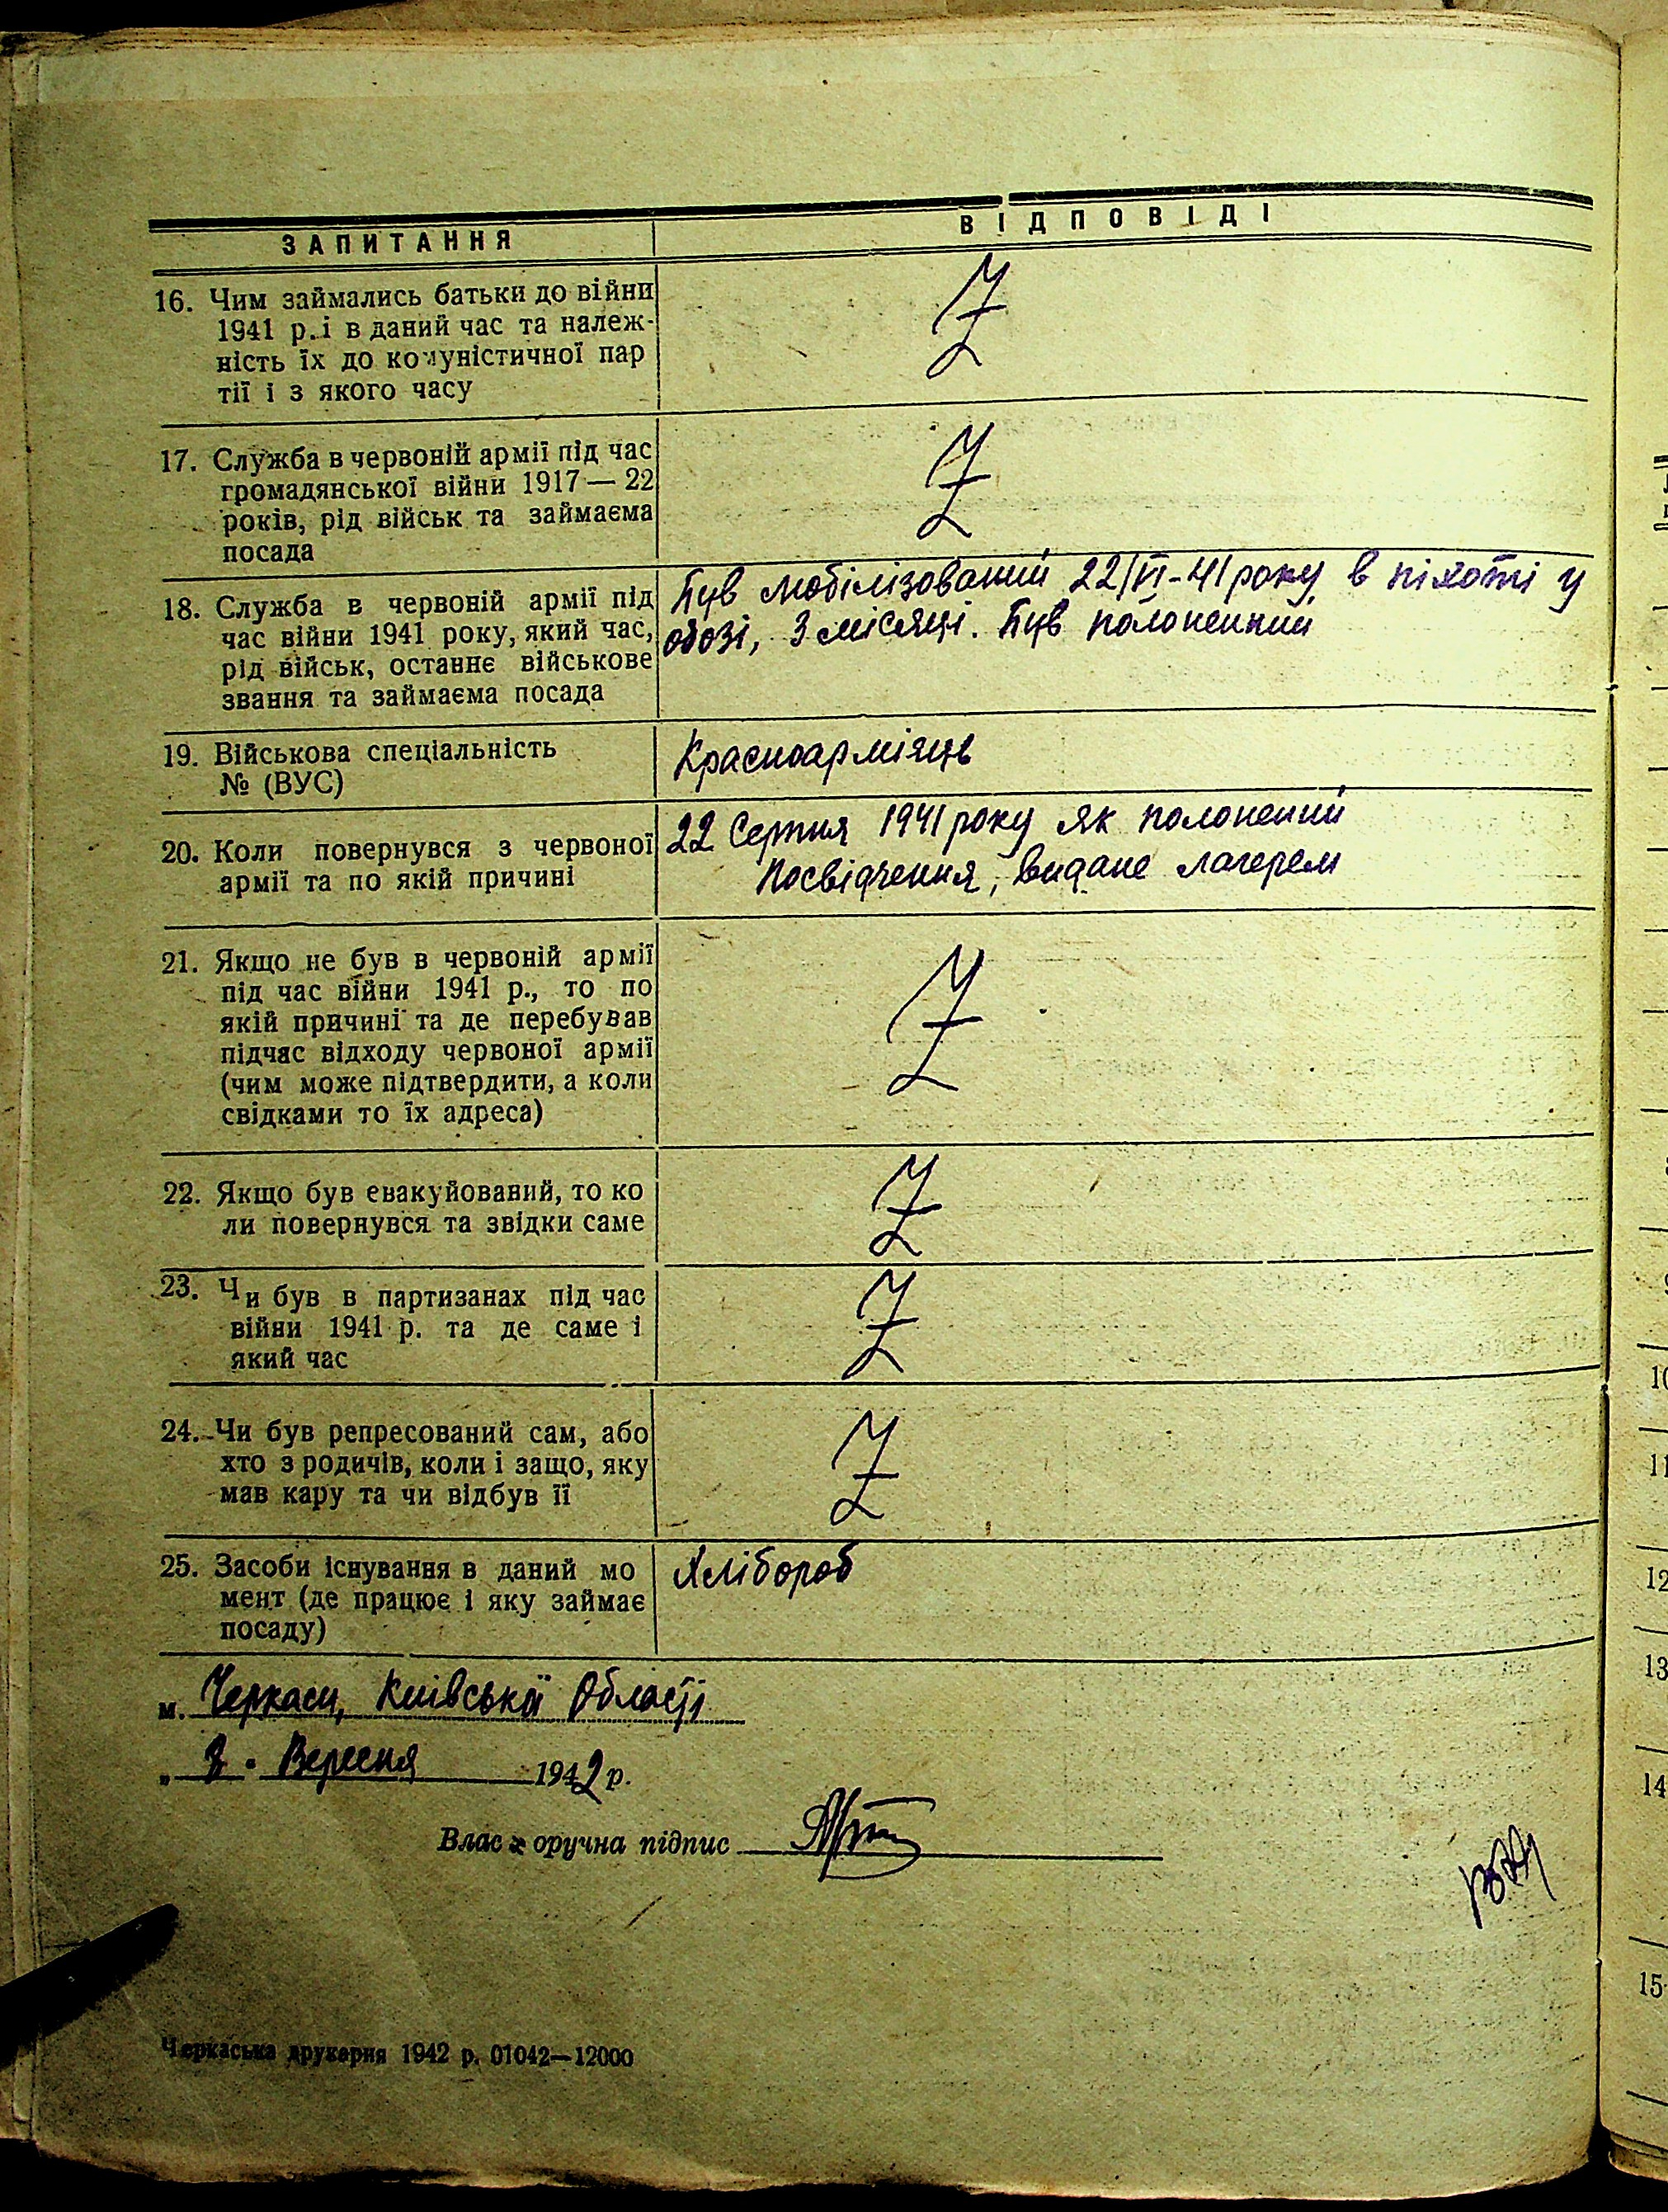 ЗАПИТАННЯ
ВІДПОВІДІ
16. Чим займались батьки до війни
1941 р. і в даний час та належ-
ність їх до комуністичної пар
тії і з якого часу
Z
17. Служба в червоній армії під час
громадянської війни 1917 — 22
років, рід військ та займаєма
посада
Z
18. Служба в червоній армії під
час війни 1941 року, який час,
рід військ, останнє військове
звання та займаєма посада
Був мобілізований 22/VI-41 року, в піхоті у
обозі, 3 місяці. Був полоненний
19. Військова спеціальність
№ (ВУС)
Красноарміяць
20. Коли повернувся з червоної
армії та по якій причині
22 Серпня 1941 року як полонений
Посвідчення, видане лагерем
21. Якщо не був в червоній армії
під час війни 1941 р., то по
якій причині та де перебував
підчас відходу червоної армії
(чим може підтвердити, а коли
свідками то їх адреса)
Z
22. Якщо був евакуйований, то ко
ли повернувся та звідки саме
Z
23. Чи був в партизанах під час
війни 1941 р. та де саме і
який час
Z
24. Чи був репресований сам, або
хто з родичів, коли і защо, яку
мав кару та чи відбув її
Z
25. Засоби існування в даний мо
мент (де працює і яку займає
посаду)
Хлібороб
м. Черкаси, Київської Області
" Вересня 1942 р.
Власноручна підпис
Черкаська друкарня 1942 р. 01042—12000
10
11
12
13
14
15